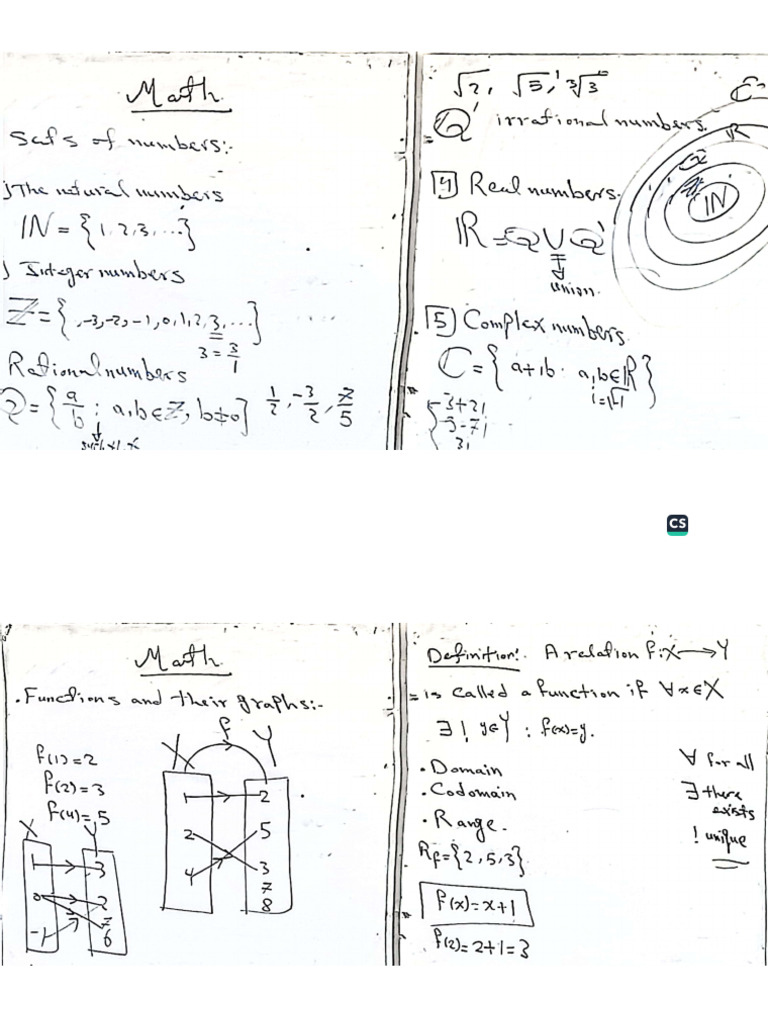 Math
Sets of numbers:-
) The natural numbers
IN = {1, 2, 3, ...}
) Integer numbers
Z = { , -3, -2, -1, 0, 1, 2, 3, ...}
3 = 3/1
Rational numbers
Q = {a/b : a, b ∈ Z, b ≠ 0} 1/2, -3/2, 7/5
√2, √5, ³√3
Q' irrational numbers.
4 Real numbers.
R = Q ∪ Q'
union.
5 Complex numbers
C = {a + ib : a, b ∈ R}
i = √-1
-3+2i
-3-7i
3i
C
R
Q
Z
IN
CS
Math
. Functions and their graphs:-
f(1) = 2
f(2) = 3
f(4) = 5
X Y
1 3
0 2
-1 7
6
f
X Y
1 2
2 5
4 3
7
8
Definition: A relation f: X → Y
is called a function if ∀ x ∈ X
∃ ! y ∈ Y : f(x) = y.
. Domain
. Codomain
. Range.
Rf = {2, 5, 3}
f(x) = x + 1
f(2) = 2 + 1 = 3
∀ for all
∃ there
exists
! unique